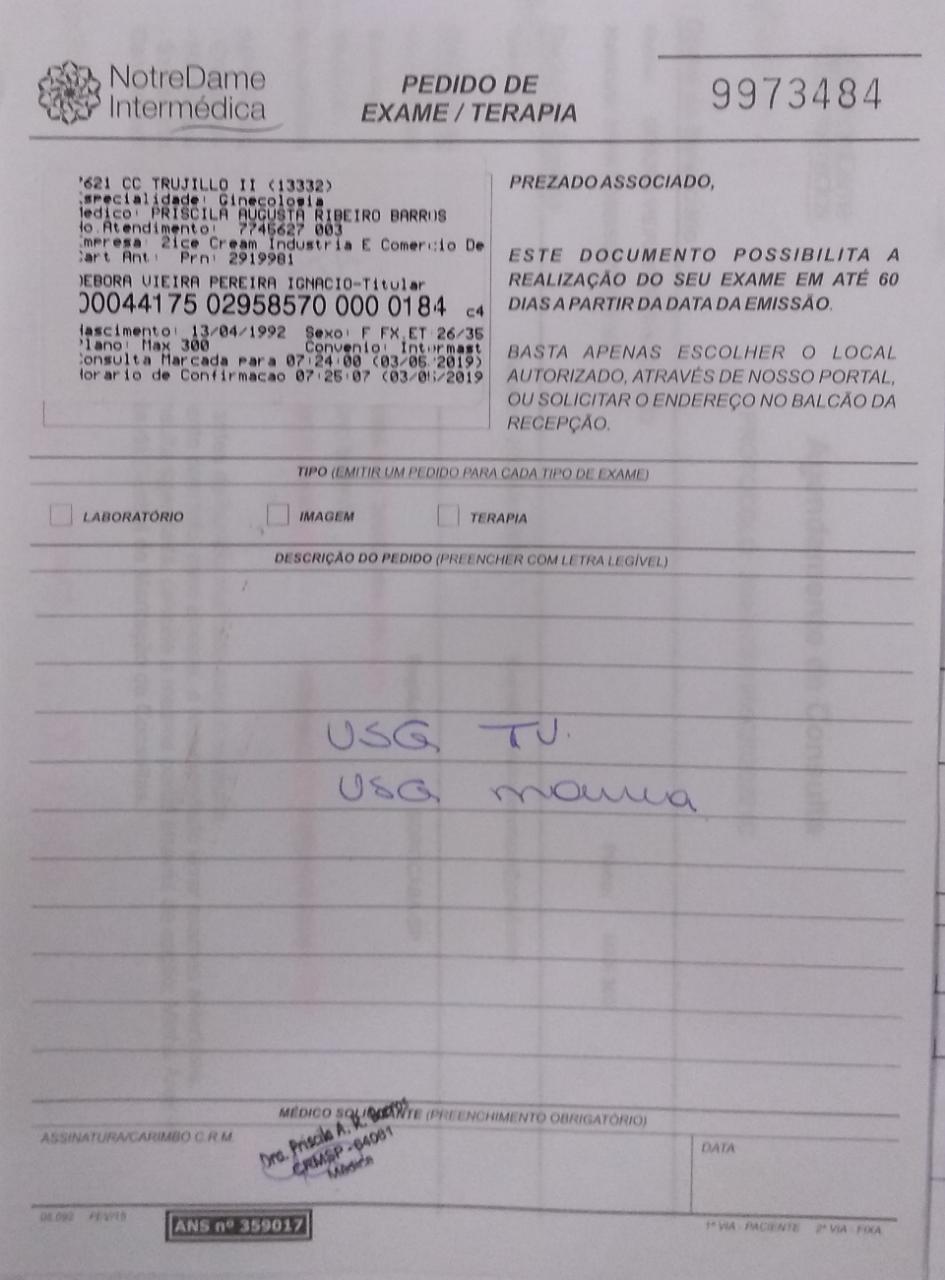 NotreDame
Intermédica
PEDIDO DE
EXAME / TERAPIA
9973484
621 CC TRUJILLO II (13332)
specialidade: Ginecologia
edico: PRISCILA AUGUSTA RIBEIRO BARROS
o.Atendimento: 7745627 003
mpresa: 2ice Cream Industria E Comercio De
art Ant: Prn: 2919981
EBORA VIEIRA PEREIRA IGNACIO-Titular
00044175 02958570 000 0184 c4
ascimento: 13/04/1992 Sexo: F FX.ET 26/35
lano: Max 300 Convenio: Intrmast
onsulta Marcada para 07:24:00 (03/05/2019)
orario de Confirmacao 07:25:07 (03/05/2019
PREZADO ASSOCIADO,
ESTE DOCUMENTO POSSIBILITA A
REALIZAÇÃO DO SEU EXAME EM ATÉ 60
DIAS A PARTIR DA DATA DA EMISSÃO.
BASTA APENAS ESCOLHER O LOCAL
AUTORIZADO, ATRAVÉS DE NOSSO PORTAL,
OU SOLICITAR O ENDEREÇO NO BALCÃO DA
RECEPÇÃO.
TIPO (EMITIR UM PEDIDO PARA CADA TIPO DE EXAME)
LABORATÓRIO IMAGEM TERAPIA
DESCRIÇÃO DO PEDIDO (PREENCHER COM LETRA LEGÍVEL)
USG TV.
USG mama
MÉDICO SOLICITANTE (PREENCHIMENTO OBRIGATÓRIO)
ASSINATURA/CARIMBO C.R.M.
Dra. Priscila A. R. Barros
CRMSP - 64081
Médica
DATA
ANS nº 359017
1ª VIA - PACIENTE 2ª VIA - FIXA